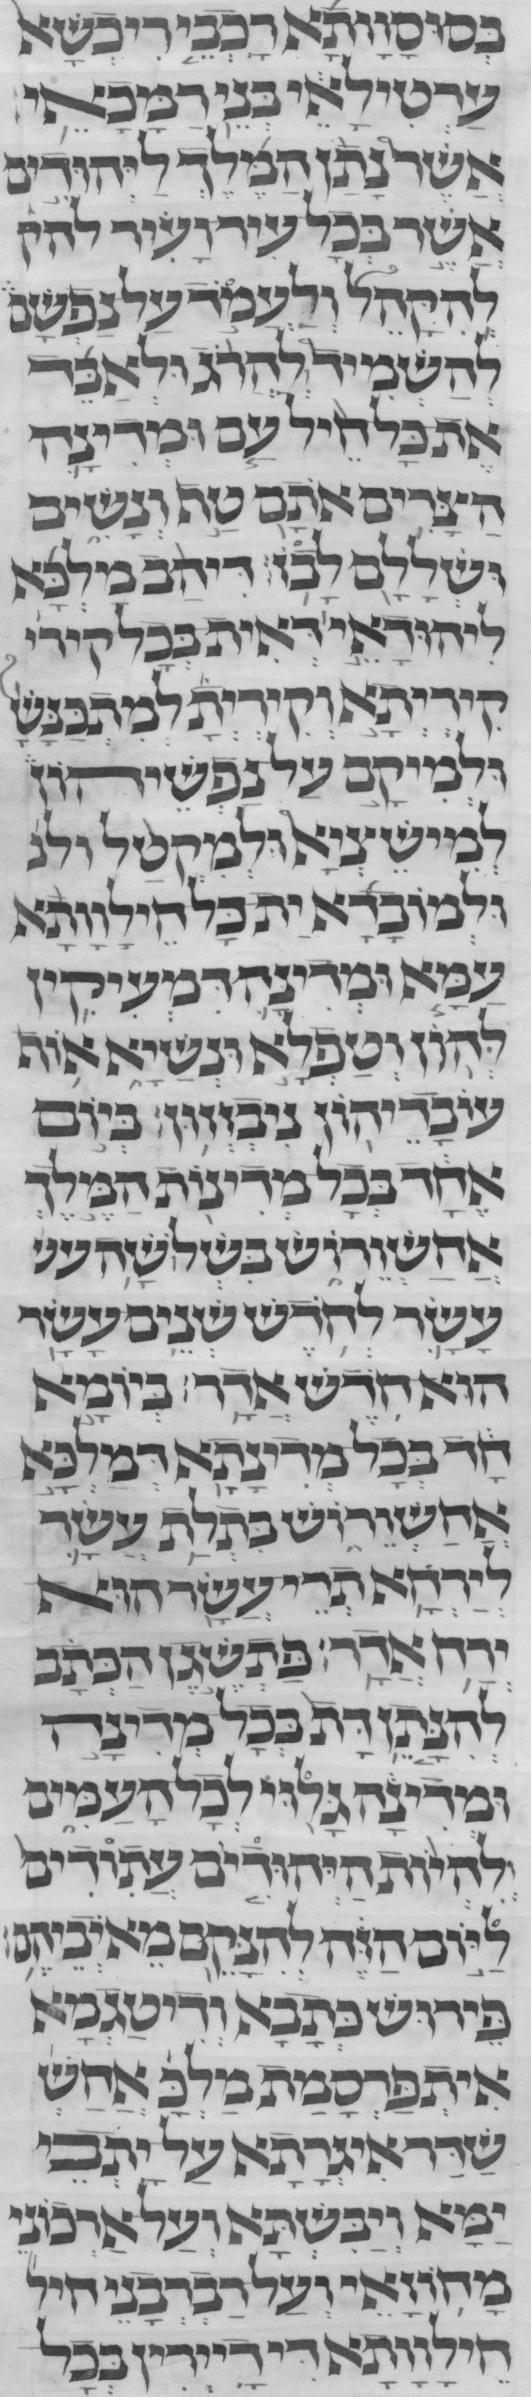 בְּסוּסָוָותָא רָכְבֵי רִיכְשָׁא
עַרְטִילָאֵי בְּנֵי רַמָּכָאֵי׃
אֲשֶׁר נָתַן הַמֶּלֶךְ לַיְּהוּדִים
אֲשֶׁר בְּכָל עִיר וָעִיר להק
לְהִקָּהֵל וְלַעֲמֹד עַל נַפְשָׁם
לְהַשְׁמִיד לַהֲרֹג וּלְאַבֵּד
אֶת כָּל חֵיל עַם וּמְדִינָה
הַצָּרִים אֹתָם טַף וְנָשִׁים
וּשְׁלָלָם לָבוֹז׃ דִּיהַב מַלְכָּא
לִיהוּדָאֵי דְּאִית בְּכָל קירי
קִירְיְתָא וְקִירְיְתָ לְמִתְכַּנָּשָׁ
וּלְמֵיקָם עַל נַפְשֵׁיהוֹן
לְמֵישֵׁיצְיָא וּלְמִקְטַל ולנ
וּלְמוֹבָדָא יַת כָּל חֵילָוָותָא
עַמָּא וּמְדִינָה דִּמְעִיקִין
לְהוֹן וְטַפְלָא וּנְשַׁיָּא אוֹת
עוֹבָדֵיהוֹן נִיבְזְזוּן׃ בְּיוֹם
אֶחָד בְּכָל מְדִינוֹת הַמֶּלֶךְ
אֲחַשְׁוֵרוֹשׁ בִּשְׁלֹשָׁה עש
עָשָׂר לְחֹדֶשׁ שְׁנֵים עָשָׂר
הוּא חֹדֶשׁ אֲדָר׃ בְּיוֹמָא
חָד בְּכָל מְדִינָתָא דְּמַלְכָּא
אֲחַשְׁוֵרוֹשׁ בִּתְלַת עֲשַׂר
לְיַרְחָא תְּרֵי עֲשַׂר הוּא
יְרַח אֲדָר׃ פַּתְשֶׁגֶן הַכְּתָב
לְהִנָּתֵן דָּת בְּכָל מְדִינָה
וּמְדִינָה גָּלוּי לְכָל הָעַמִּים
וְלִהְיוֹת הַיְּהוּדִים עֲתוּדִים
לַיּוֹם הַזֶּה לְהִנָּקֵם מֵאֹיְבֵיהֶם׃
פֵּירוּשׁ כְּתָבָא וְדִיטַגְמָא
אִיתְפַּרְסָמַת מַלְכָּ אֲחַשְׁ
שַׁדַּר אִיגַּרְתָּא עַל יָתְבֵי
יַמָּא וְיַבֶּשְׁתָּא וְעַל אַרְכוֹנֵי
מָחוֹזָאֵי וְעַל רַבְרְבָנֵי חיל
חֵילָוָותָא דִּי דָּיְירִין בְּכָל